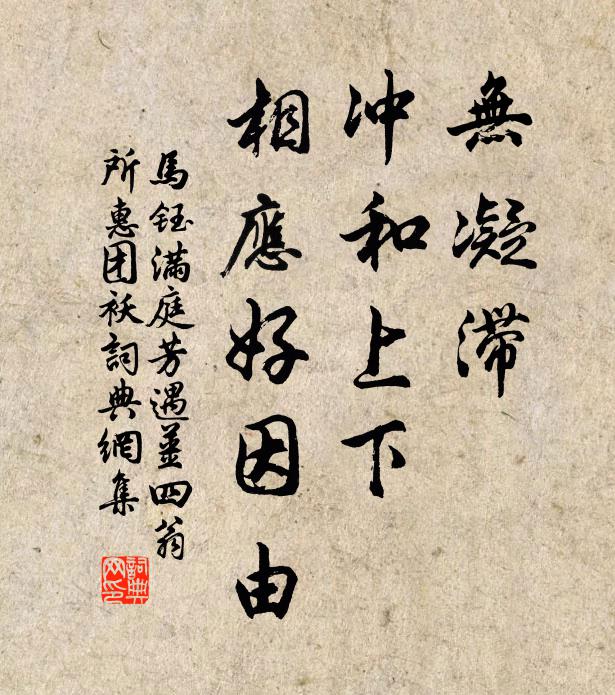 無凝滞
冲和上下
相應好因由
馬鈺满庭芳遇姜四翁
所惠团袄詞典網集
詞典
网印